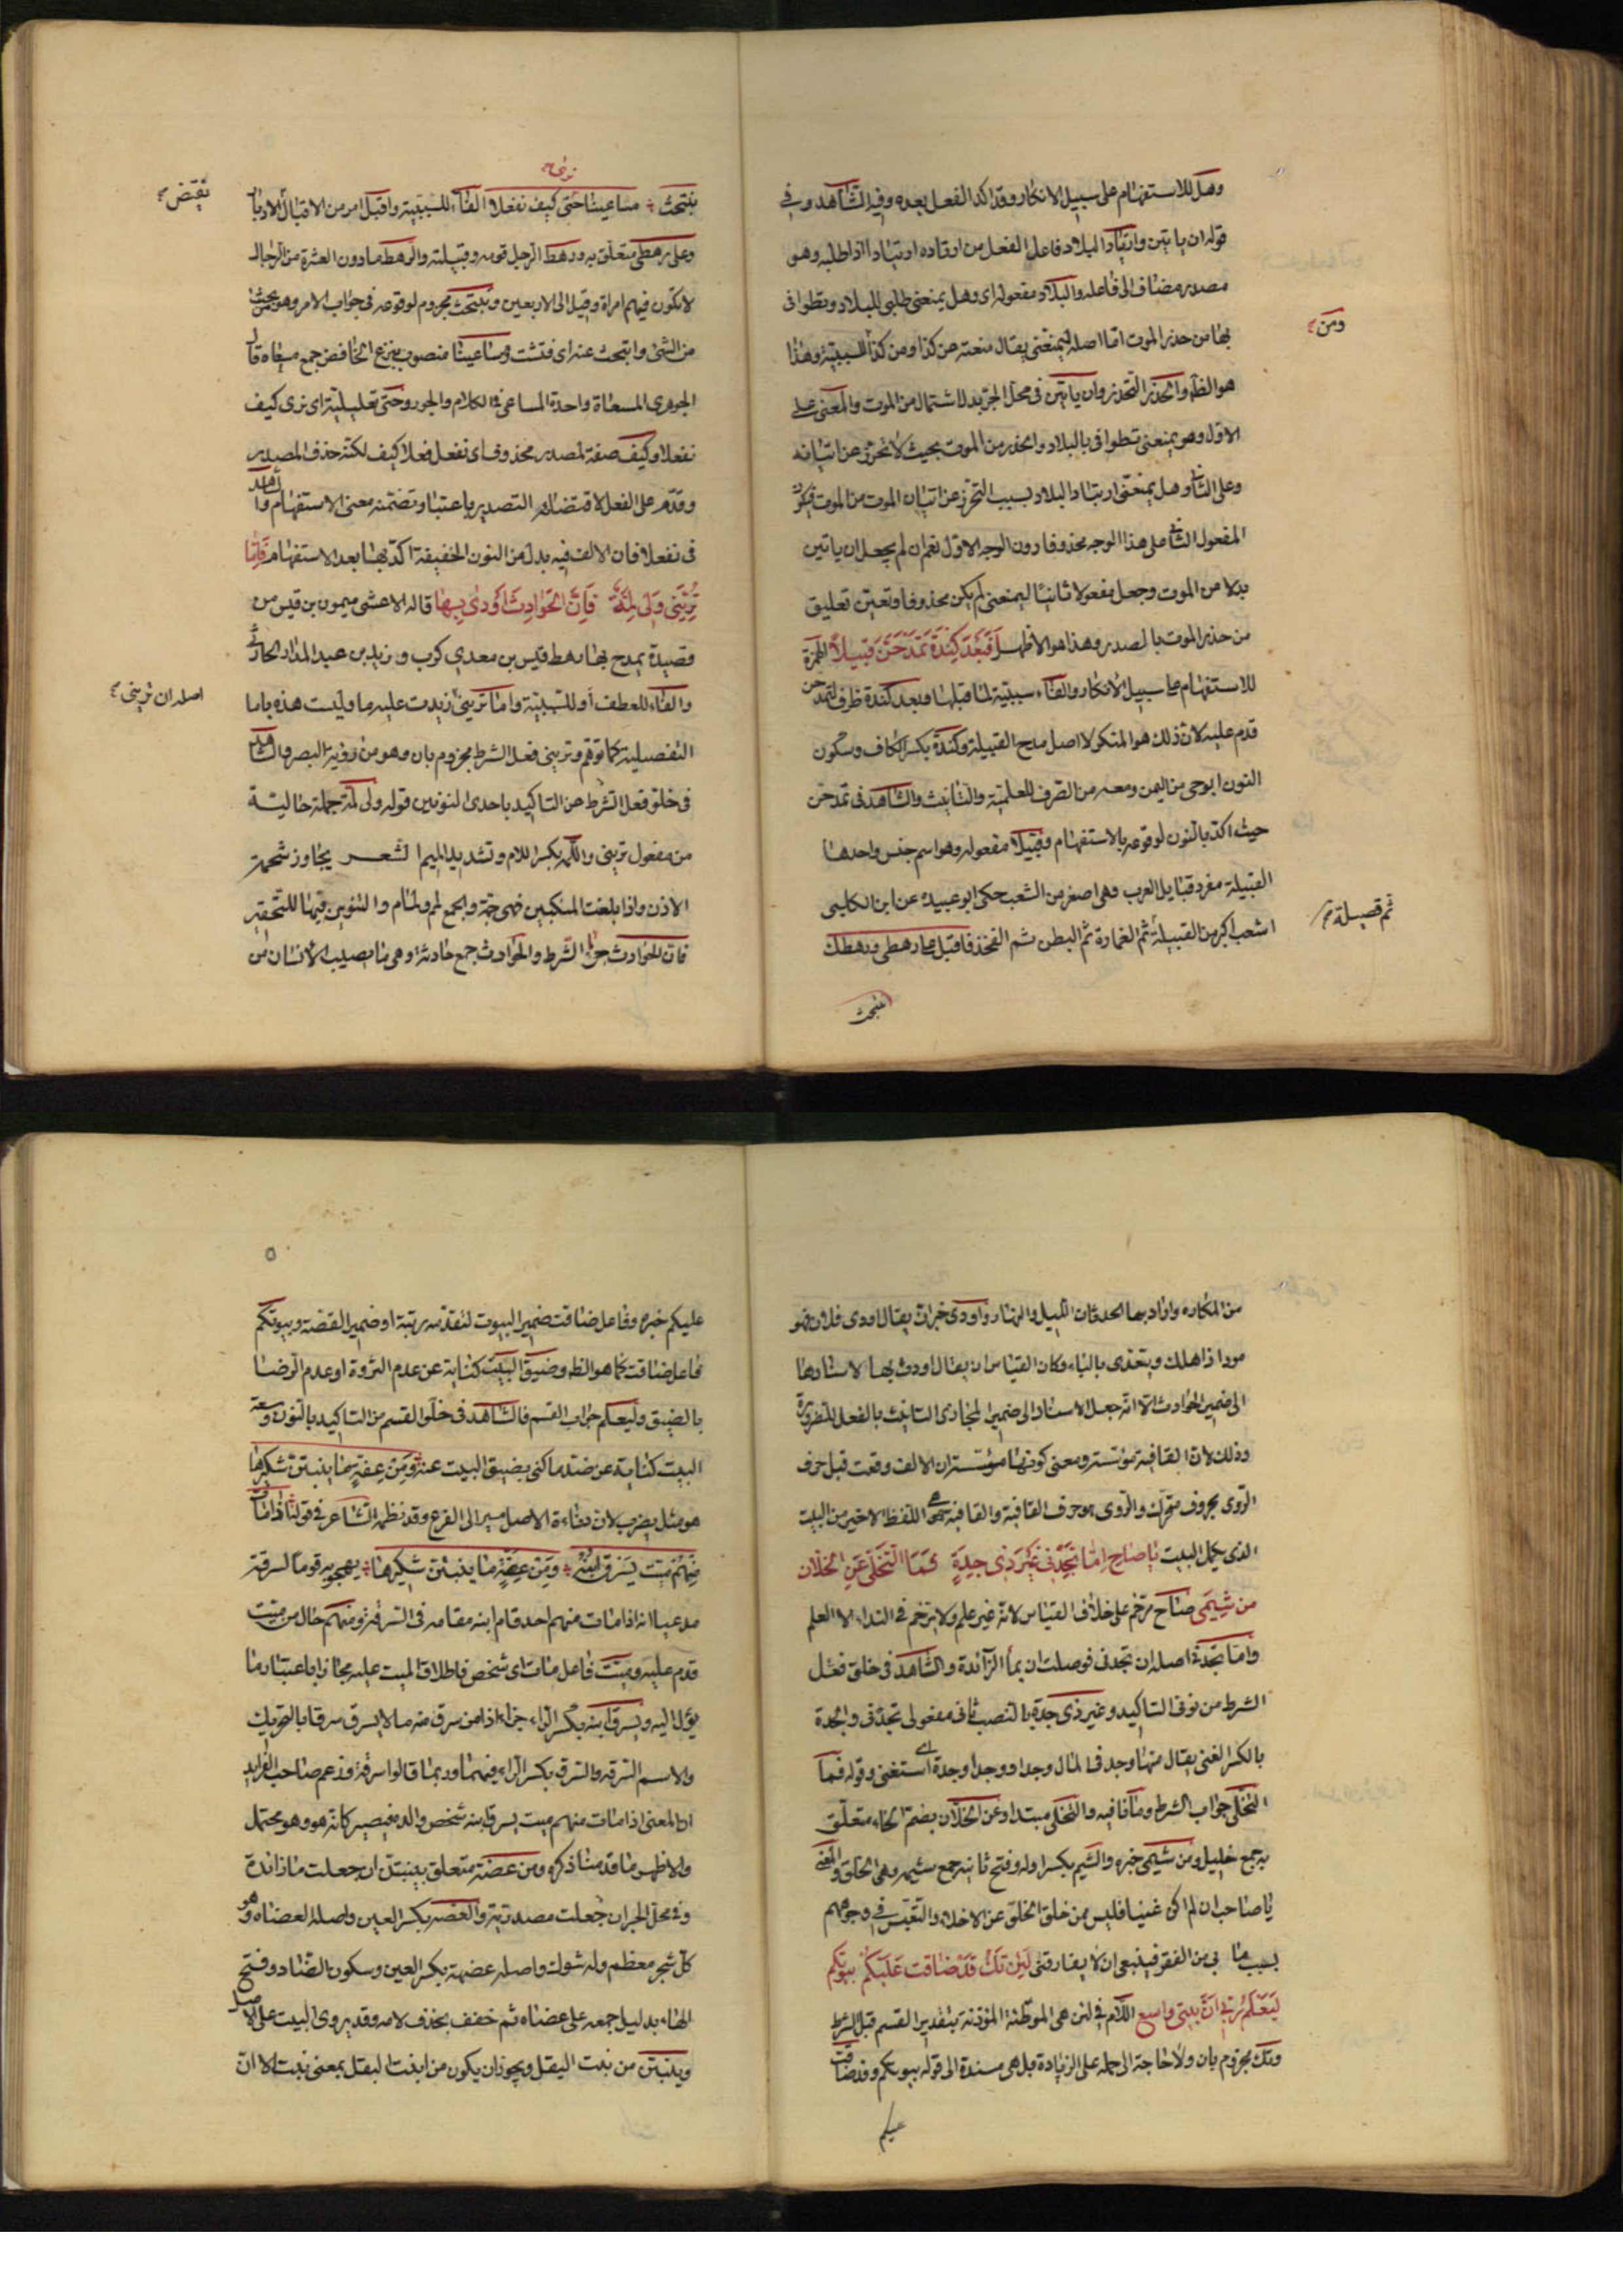 وهل للاستفهام على سبيل الانكار وقد اكد الفعل بعده وفيه الشاهد وفي
قوله ان ياتين وارتياد البلاد فاعل الفعل من ارتاده ارتيادا اذا طلبه وهو
مصدر مضاف الى فاعله والبلاد مفعوله اى وهل يمنعنى طلبى للبلاد وتطوافى
بها من حذر الموت اما اصله ليمنعنى يقال منعته عن كذا ومن كذا للسببية وهذا
ومن
هو الظ والحذر التحذر وان ياتين في محل الجر بدل اشتمال من الموت والمعنى على
الاول وهو يمنعنى تطوافى بالبلاد والحذر من الموت بحيث لا تحرز عن اتيانه
وعلى الثانى وهل يمنعنى ارتياد البلاد بسبب التحرز عن اتيان الموت من الموت فيكون
المفعول الثانى على هذا الوجه محذوفا دون الوجه الاول نعم ان لم يجعل ان ياتين
بدلا من الموت وجعل مفعولا ثانيا ليمنعنى لم يكن محذوفا وتعين تعليق
من حذر الموت بالمصدر وهذا هو الاظهر افبعد كندة تمدحن قبيلا الهمزة
للاستفهام على سبيل الانكار والفاء سببية لما قبلها وبعد كندة ظرف لتمدحن
قدم عليه لان ذلك هو المنكر لا اصل مدح القبيلة وكندة بكسر الكاف وسكون
النون ابو حى من اليمن ومعه من الصرف للعلمية والتانيث والشاهد في تمدحن
حيث اكد بالنون لوقوعه بالاستفهام وقبيلا مفعوله وهو اسم جنس واحدها
القبيلة مفرد قبايل العرب وهى اصغر من الشعب حكى ابو عبيدة عن ابن الكلبى
الشعب اكبر من القبيلة ثم العمارة ثم البطن ثم الفخذ فاقبل على رهطى ورهطك
ثم فصيلة
نبتحث
نرى
نبتحث مساعينا حتى كيف نفعلا الفاء للسببية واقبل امر من الاقبال الادبار
نقيض
وعلى رهطى متعلق به ورهط الرجل قومه وقبيلته والرهط مادون العشرة من الرجال
لا يكون فيهم امراة وقيل الى الاربعين ونبتحث مجزوم لوقوعه في جواب الامر وهو
من الشئ وابتحث عنه اى فتشت ومساعينا منصوب بنزع الخافض جمع مسعاة قال
الجوهرى المسعاة واحدة المساعى في الكلام والجود وحتى تعليلية اى نرى كيف
نفعلا وكيف صفة لمصدر محذوف اى نفعل فعلا كيف لكنه حذف المصدر
وقدم على الفعل لاقتضائه التصدير باعتبار تضمنه معنى الاستفهام والشاهد
فى نفعلا فان الالف فيه بدل من النون الخفيفة اكد بها بعد الاستفهام فاما
تريني ولى لمة فان الحوادث اودى بها قاله الاعشى ميمون بن قيس من
قصيدة يمدح بها رهط قيس بن معدي كرب ويزيد بن عبد المدان الحارثى
والفاء للعطف او للسببية واما ترينى زيدت عليه ما وليست هذه باما
اصله ان ترينى
التفصيلية كما توهم وترينى فعل الشرط مجزوم بان وهو من رؤية البصر والشاهد
فى خلو فعل الشرط عن التاكيد باحدى النونين قوله ولى لمة جملة حالية
من مفعول ترينى واللمة بكسر اللام وتشديد الميم الشعر يجاوز شحمة
الاذن واذا بلغت المنكبين فهى جمة والجمع لمم ولمام والتنوين فيها للتحقير
فان الحوادث جزاء الشرط والحوادث جمع حادثة وهى ما يصيب الانسان من
من المكاره واراد بها الحدثان الليل والنهار واودى خبر ان يقال اودى فلان فهو
مودا اذا هلك ويتعدى بالباء وكان القياس ان يقال اودت بها لاسنادها
الى ضمير الحوادث الا انه جعل الاسناد الى ضمير المجازى التانيث بالفعل للضرورة
وذلك لان القافية مؤسسة ومعنى كونها مؤسسة ان الالف وقعت قبل حرف
الروى بحروف متحرك والروى هو حرف القافية والقافية هى اللفظ الاخير من البيت
الذى يكمل البيت يا صاح اما تجدنى غير ذى جدة فما التخلى عن الخلان
من شيمى صاح مرخم على خلاف القياس لانه غير علم ولا يرخم فى النداء الا العلم
واما تجدنى اصله ان تجدنى فوصلت ان بما الزائدة والشاهد فى خلو فعل
الشرط من نونى التاكيد وغير ذى جدة بالنصب ثانى مفعولى تجدنى والجدة
بالكسر الغنى يقال منها وجد فى المال وجدا ووجدا وجدة اى استغنى وقوله فما
التخلى جواب الشرط وما نافية والتخلى مبتدا وعن الخلان بضم الخاء متعلق
به جمع خليل ومن شيمى خبره والشيم بكسر اوله وفتح ثانيه جمع شيمة وهى الخلق والمعنى
يا صاحب ان لم اكن غنيا فليس من خلق التخلق عن الاخلاء والتعبس فى وجوههم
بسبب ما بى من الفقر فينبغى ان لا يفارقنى لئن تك قد ضاقت عليكم بيوتكم
ليعلم ربى ان بيتى واسع اللام فى لئن هى الموطئة المؤذنة بتقدير القسم قبل الشرط
وتك مجزوم بان ولا حاجة الى حمله على الزيادة بل هى مسندة الى قوله بيوتكم وقد ضاقت
عليكم
٥
عليكم خبره وفاعل ضاقت ضمير البيوت لتقدمه رتبة او ضمير القصة وبيوتكم
فاعل ضاقت كما هو الظ وضيق البيت كناية عن عدم الثروة او عدم الرضا
بالضيق وليعلم جواب القسم فالشاهد فى خلو القسم من التاكيد بالنون وسعة
البيت كناية عن ضد ما كنى بضيق البيت عنه ومن عضة ما ينبتن شكيرها
هو مثل يضرب لان نشاءة الاصل سير الى الفرع وقد نظمه الشاعر فى قوله اذا مات
منهم ميت يسرق ابنه ومن عضة ما ينبتن شكيرها يهجو به قوما لسرقة
مدعيا انه اذا مات منهم احد قام ابنه مقامه فى السرقة ومنهم حال من ميت
قدم عليه وميت فاعل مات اى شخص فاطلاق الميت عليه مجازا باعتبار ما
يؤل اليه ويسرق ابنه بكسر الراء جزاء اذا من سرق منه مالا يسرق سرقا بالتحريك
والاسم السرقة والسرق بكسر الراء فيهما وربما قالوا سرقة وزعم صاحب الفرايد
ان المعنى اذا مات منهم ميت يسرق ابنه شخص والده فيصير كانه هو وهو محتمل
والاظهر ما قدمنا ذكره ومن عضة متعلق بينبتن ان جعلت ما زائدة
وفى محل الجر ان جعلت مصدرية والعضة بكسر العين واصله العضاه وهو
كل شجر معظم وله شوك واصله عضهة بكسر العين وسكون الضاد وفتح
الهاء بدليل جمعه على عضاه ثم خفف بحذف لامه وقد يروى البيت على الاصل
وينبتن من نبت البقل ويجوز ان يكون من انبت البقل بمعنى نبت الا ان